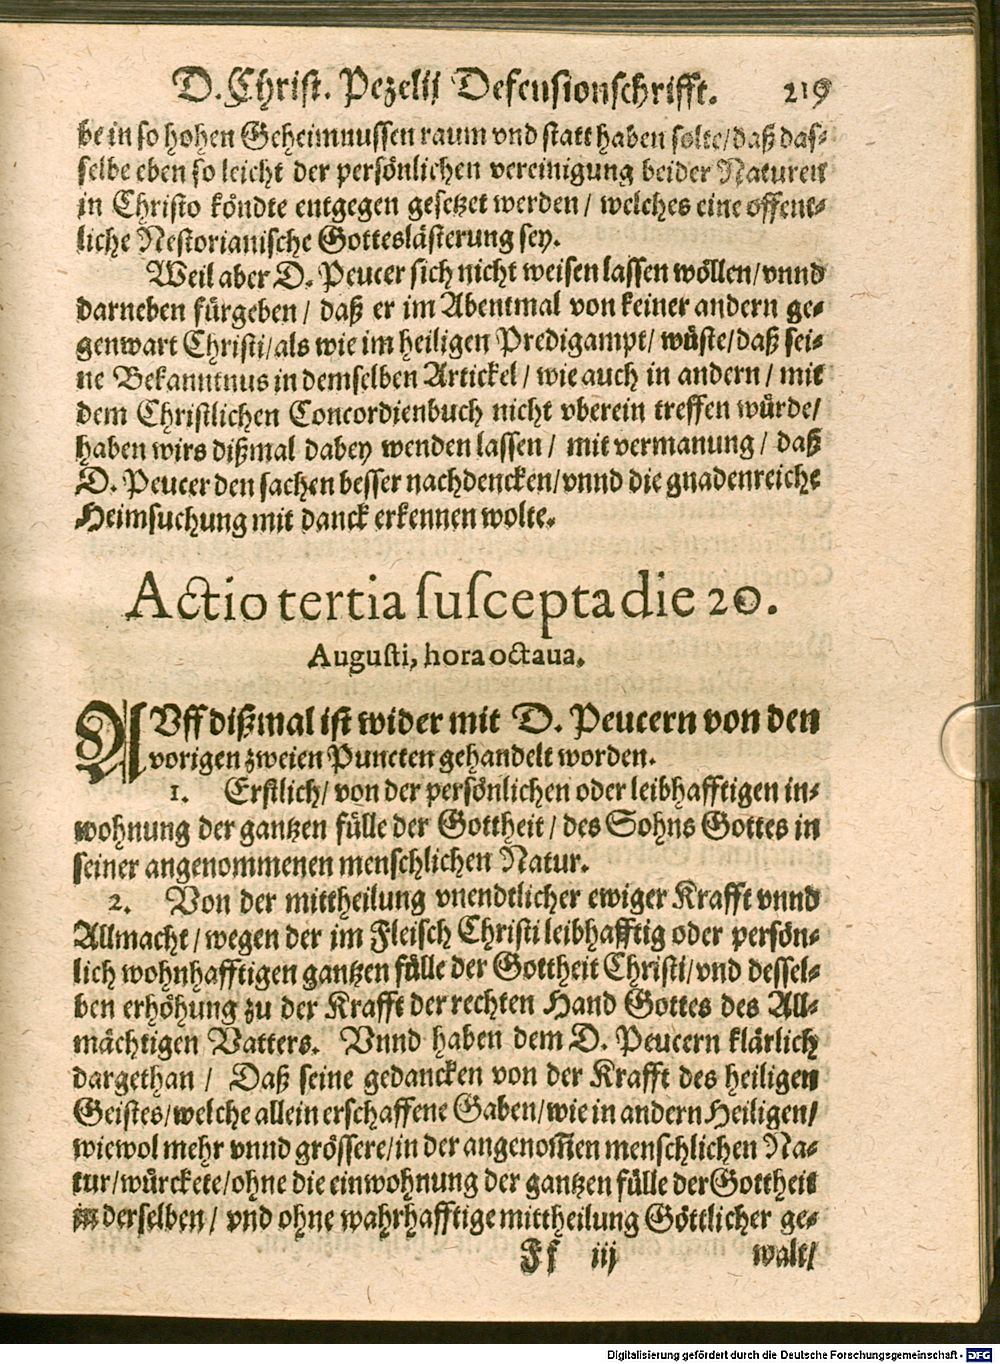 D. Christ. Pezelij Defensionschrifft. 219
be in so hohen Geheimnussen raum vnd statt haben solte/ daß das-
selbe eben so leicht der persönlichen vereinigung beider Naturen
in Christo köndte entgegen gesetzet werden / welches eine offent-
liche Nestorianische Gotteslästerung sey.
Weil aber D. Peucer sich nicht weisen lassen wöllen/ vnnd
darneben fürgeben / daß er im Abentmal von keiner andern ge-
genwart Christi/ als wie im heiligen Predigampt/ wüste/ daß sei-
ne Bekanntnus in demselben Artickel / wie auch in andern / mit
dem Christlichen Concordienbuch nicht vberein treffen würde/
haben wirs dißmal dabey wenden lassen / mit vermanung / daß
D. Peucer den sachen besser nachdencken/ vnnd die gnadenreiche
Heimsuchung mit danck erkennen wolte.
Actio tertia suscepta die 20.
Augusti, hora octaua.
AVff dißmal ist wider mit D. Peucern von den
vorigen zweien Puncten gehandelt worden.
1. Erstlich/ von der persönlichen oder leibhafftigen in-
wohnung der gantzen fülle der Gottheit / des Sohns Gottes in
seiner angenommenen menschlichen Natur.
2. Von der mittheilung vnendtlicher ewiger Krafft vnnd
Allmacht / wegen der im Fleisch Christi leibhafftig oder persön-
lich wohnhafftigen gantzen fülle der Gottheit Christi/ vnd dessel-
ben erhöhung zu der Krafft der rechten Hand Gottes des All-
mächtigen Vatters. Vnnd haben dem D. Peucern klärlich
dargethan / Daß seine gedancken von der Krafft des heiligen
Geistes/ welche allein erschaffene Gaben/ wie in andern Heiligen/
wiewol mehr vnnd grössere/ in der angenom̃en menschlichen Na-
tur/ würckete/ ohne die einwohnung der gantzen fülle der Gottheit
in derselben/ vnd ohne wahrhafftige mittheilung Göttlicher ge-
Ff iij walt/
Digitalisierung gefördert durch die Deutsche Forschungsgemeinschaft - DFG